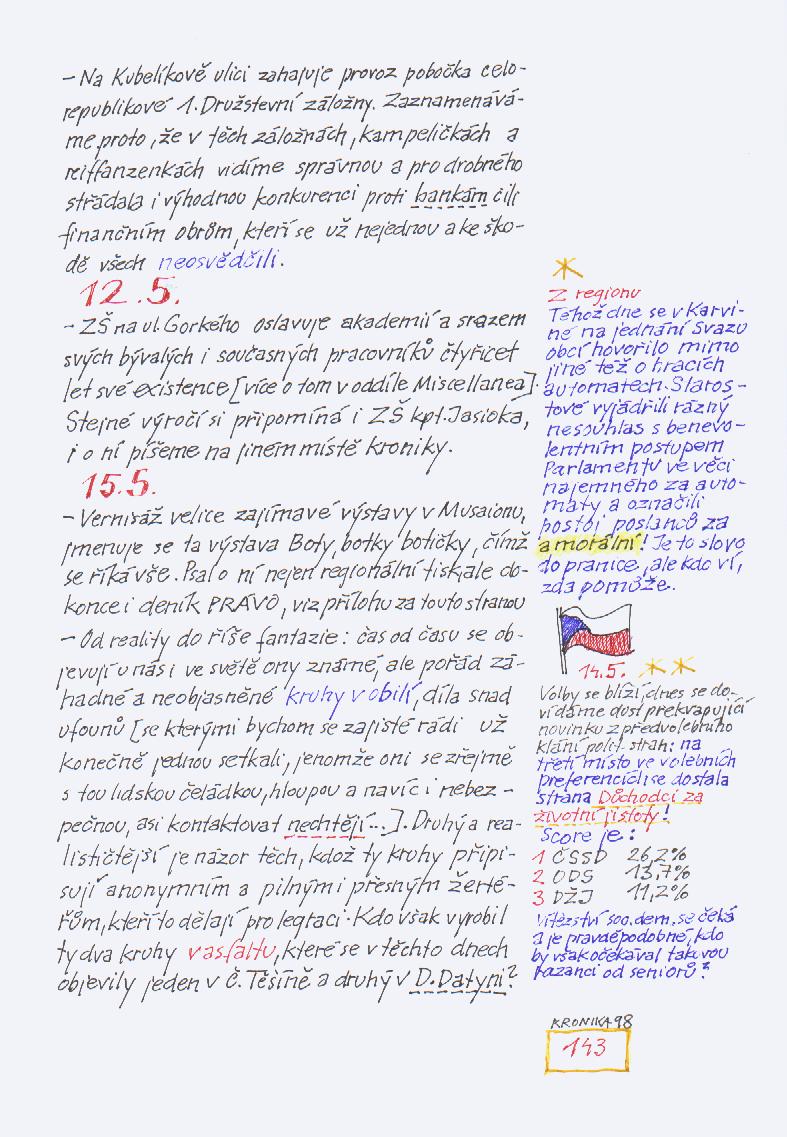 – Na Kubelíkově ulici zahajuje provoz pobočka celo-
republikové 1. Družstevní záložny. Zaznamenává-
me proto, že v těch záložnách, kampeličkách a
reiffanzenkách vidíme správnou a pro drobného
střádala i výhodnou konkurenci proti bankám čili
finančním obrům, kteří se už nejednou a ke ško-
dě všech neosvědčili.
12.5.
– ZŠ na ul. Gorkého oslavuje akademií a srazem
svých bývalých i současných pracovníků čtyřicet
let své existence [více o tom v oddíle Miscellanea].
Stejné výročí si připomíná i ZŠ kpt. Jasioka,
i o ní píšeme na jiném místě kroniky.
15.5.
– Vernisáž velice zajímavé výstavy v Musaionu,
jmenuje se ta výstava Boty, botky botičky, čímž
se říká vše. Psal o ní nejen regionální tisk, ale do-
konce i deník PRÁVO, viz přílohu za touto stranou
– Od reality do říše fantazie: čas od času se ob-
jevují u nás i ve světě ony známé, ale pořád zá-
hadné a neobjasněné kruhy v obilí, díla snad
ufounů [se kterými bychom se zajisté rádi už
konečně jednou setkali, jenomže oni se zřejmě
s tou lidskou čeládkou, hloupou a navíc i nebez-
pečnou, asi kontaktovat nechtějí...]. Druhý a rea-
lističtější je názor těch, kdož ty kruhy připi-
sují anonymním a pilným i přesným žerté-
řům, kteří to dělají pro legraci. Kdo však vyrobil
ty dva kruhy v asfaltu, které se v těchto dnech
objevily jeden v Č. Těšíně a druhý v D. Datyni?
Z regionu
Téhož dne se v Karvi-
né na jednání Svazu
obcí hovořilo mimo
jiné též o hracích
automatech. Staros-
tové vyjádřili rázný
nesouhlas s benevo-
lentním postupem
Parlamentu ve věci
nájemného za auto-
maty a označili
postoj poslanců za
amorální! Je to slovo
do pranice, ale kdo ví,
zda pomůže.
14.5.
Volby se blíží, dnes se do-
vídáme dost překvapující
novinku z předvolebního
klání polit. strah: na
třetí místo ve volebních
preferencích se dostala
strana Důchodci za
životní jistoty!
Score je:
1 ČSSD 26,2%
2 ODS 13,7%
3 DŽJ 11,2%
Vítězství soc. dem. se čeká
a je pravděpodobné, kdo
by však očekával takovou
razanci od seniorů?
KRONIKA 98
143